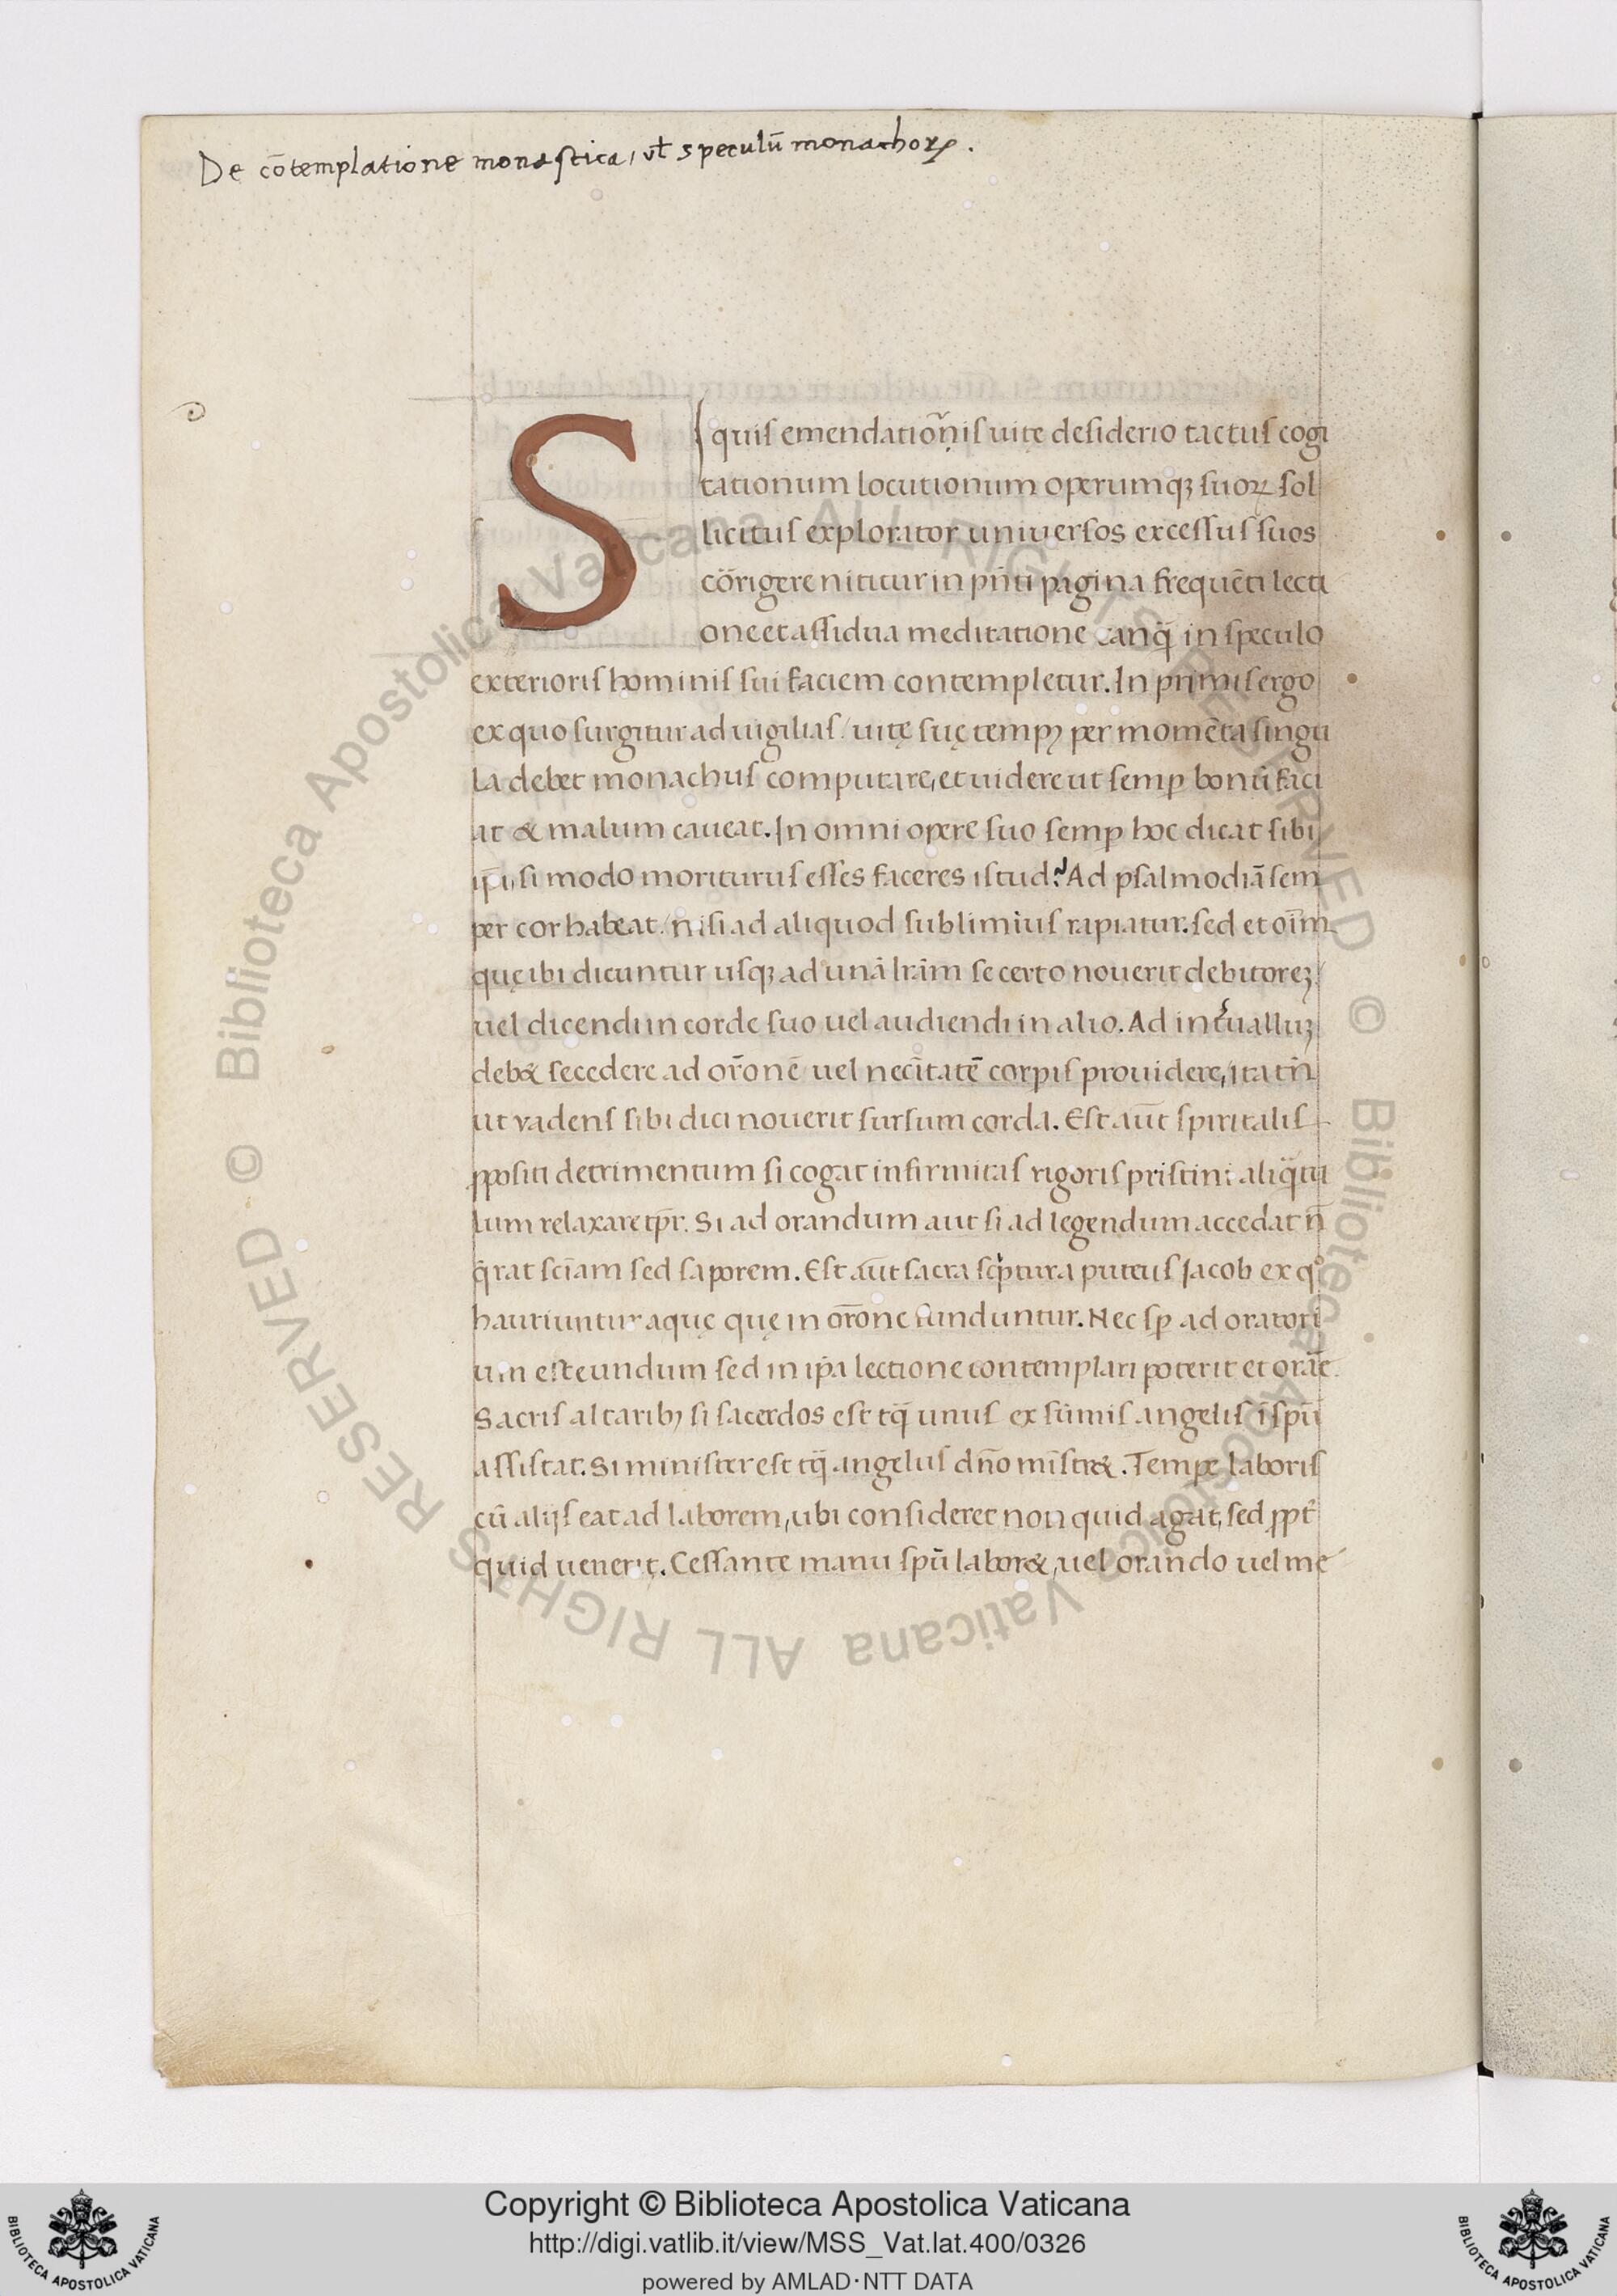 De cōtemplatione monastica, vł speculū monachoꝝ.
SI quis emendatiōnis uitę desiderio tactus cogi
tationum locutionum operumqꝫ suoꝝ sol
licitus explorator uniuersos excessus suos
cōrigere nititur in pn̄ti pagina frequēti lecti
one et assidua meditatione tanq̄ in speculo
exterioris hominis sui faciem contempletur. In primis ergo
ex quo surgitur ad uigilias / uitę suę tempꝰ per momēta singu
la debet monachus computare, et uidere ut semꝑ bonū faci
at & malum caueat. In omni opere suo semꝑ hoc dicat sibi
ip̄i, si modo moriturus esses faceres istud? Ad psalmodiā sem
per cor habeat / nisi ad aliquod sublimius rapiatur. sed et oīm
quę ibi dicuntur usqꝫ ad unā lr̄am se certo nouerit debitoreꝫ
uel dicendi in corde suo uel audiendi in alio. Ad int̓ualluꝫ
deb& secedere ad or̄onē uel necitatē corpis prouidere, ita tn̄
ut vadens sibi dici nouerit sursum corda. Est aūt spiritalis
ꝓpositi detrimentum si cogat infirmitas rigoris pristini aliq̄tu
lum relaxare tp̄r. Si ad orandum aut si ad legendum accedat n̄
q̄rat sciam sed saporem. Est aūt sacra scͥptura puteus Jacob ex qͦ
hauriuntur aquę quę in or̄one funduntur. Nec sꝑ ad oratori
um est eundum sed in ip̄a lectione contemplari poterit et orāe.
Sacris altaribꝰ si sacerdos est tq̄ unus ex sūmis angelis ī spū
assistat. Si minister est tq̄ angelus dn̄o mīstr&. Tempe laboris
cū alijs eat ad laborem, ubi consideret non quid agat, sed ꝓpt̓
quid uenerit. Cessante manu spū labor&, uel orando uel me
© Biblioteca Apostolica Vaticana ALL RIGHTS RESERVED © Biblioteca Apostolica Vaticana ALL RIGHTS RESERVED
Copyright © Biblioteca Apostolica Vaticana
http://digi.vatlib.it/view/MSS_Vat.lat.400/0326
powered by AMLAD·NTT DATA
BIBLIOTECA APOSTOLICA VATICANA
BIBLIOTECA APOSTOLICA VATICANA